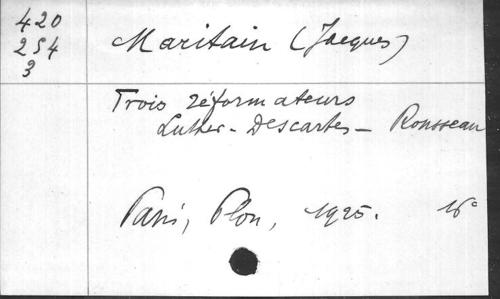 420
254
3
Maritain (Jacques)
Trois réformateurs
Luther - Descartes - Rousseau
Paris, Plon, 1925. 16°